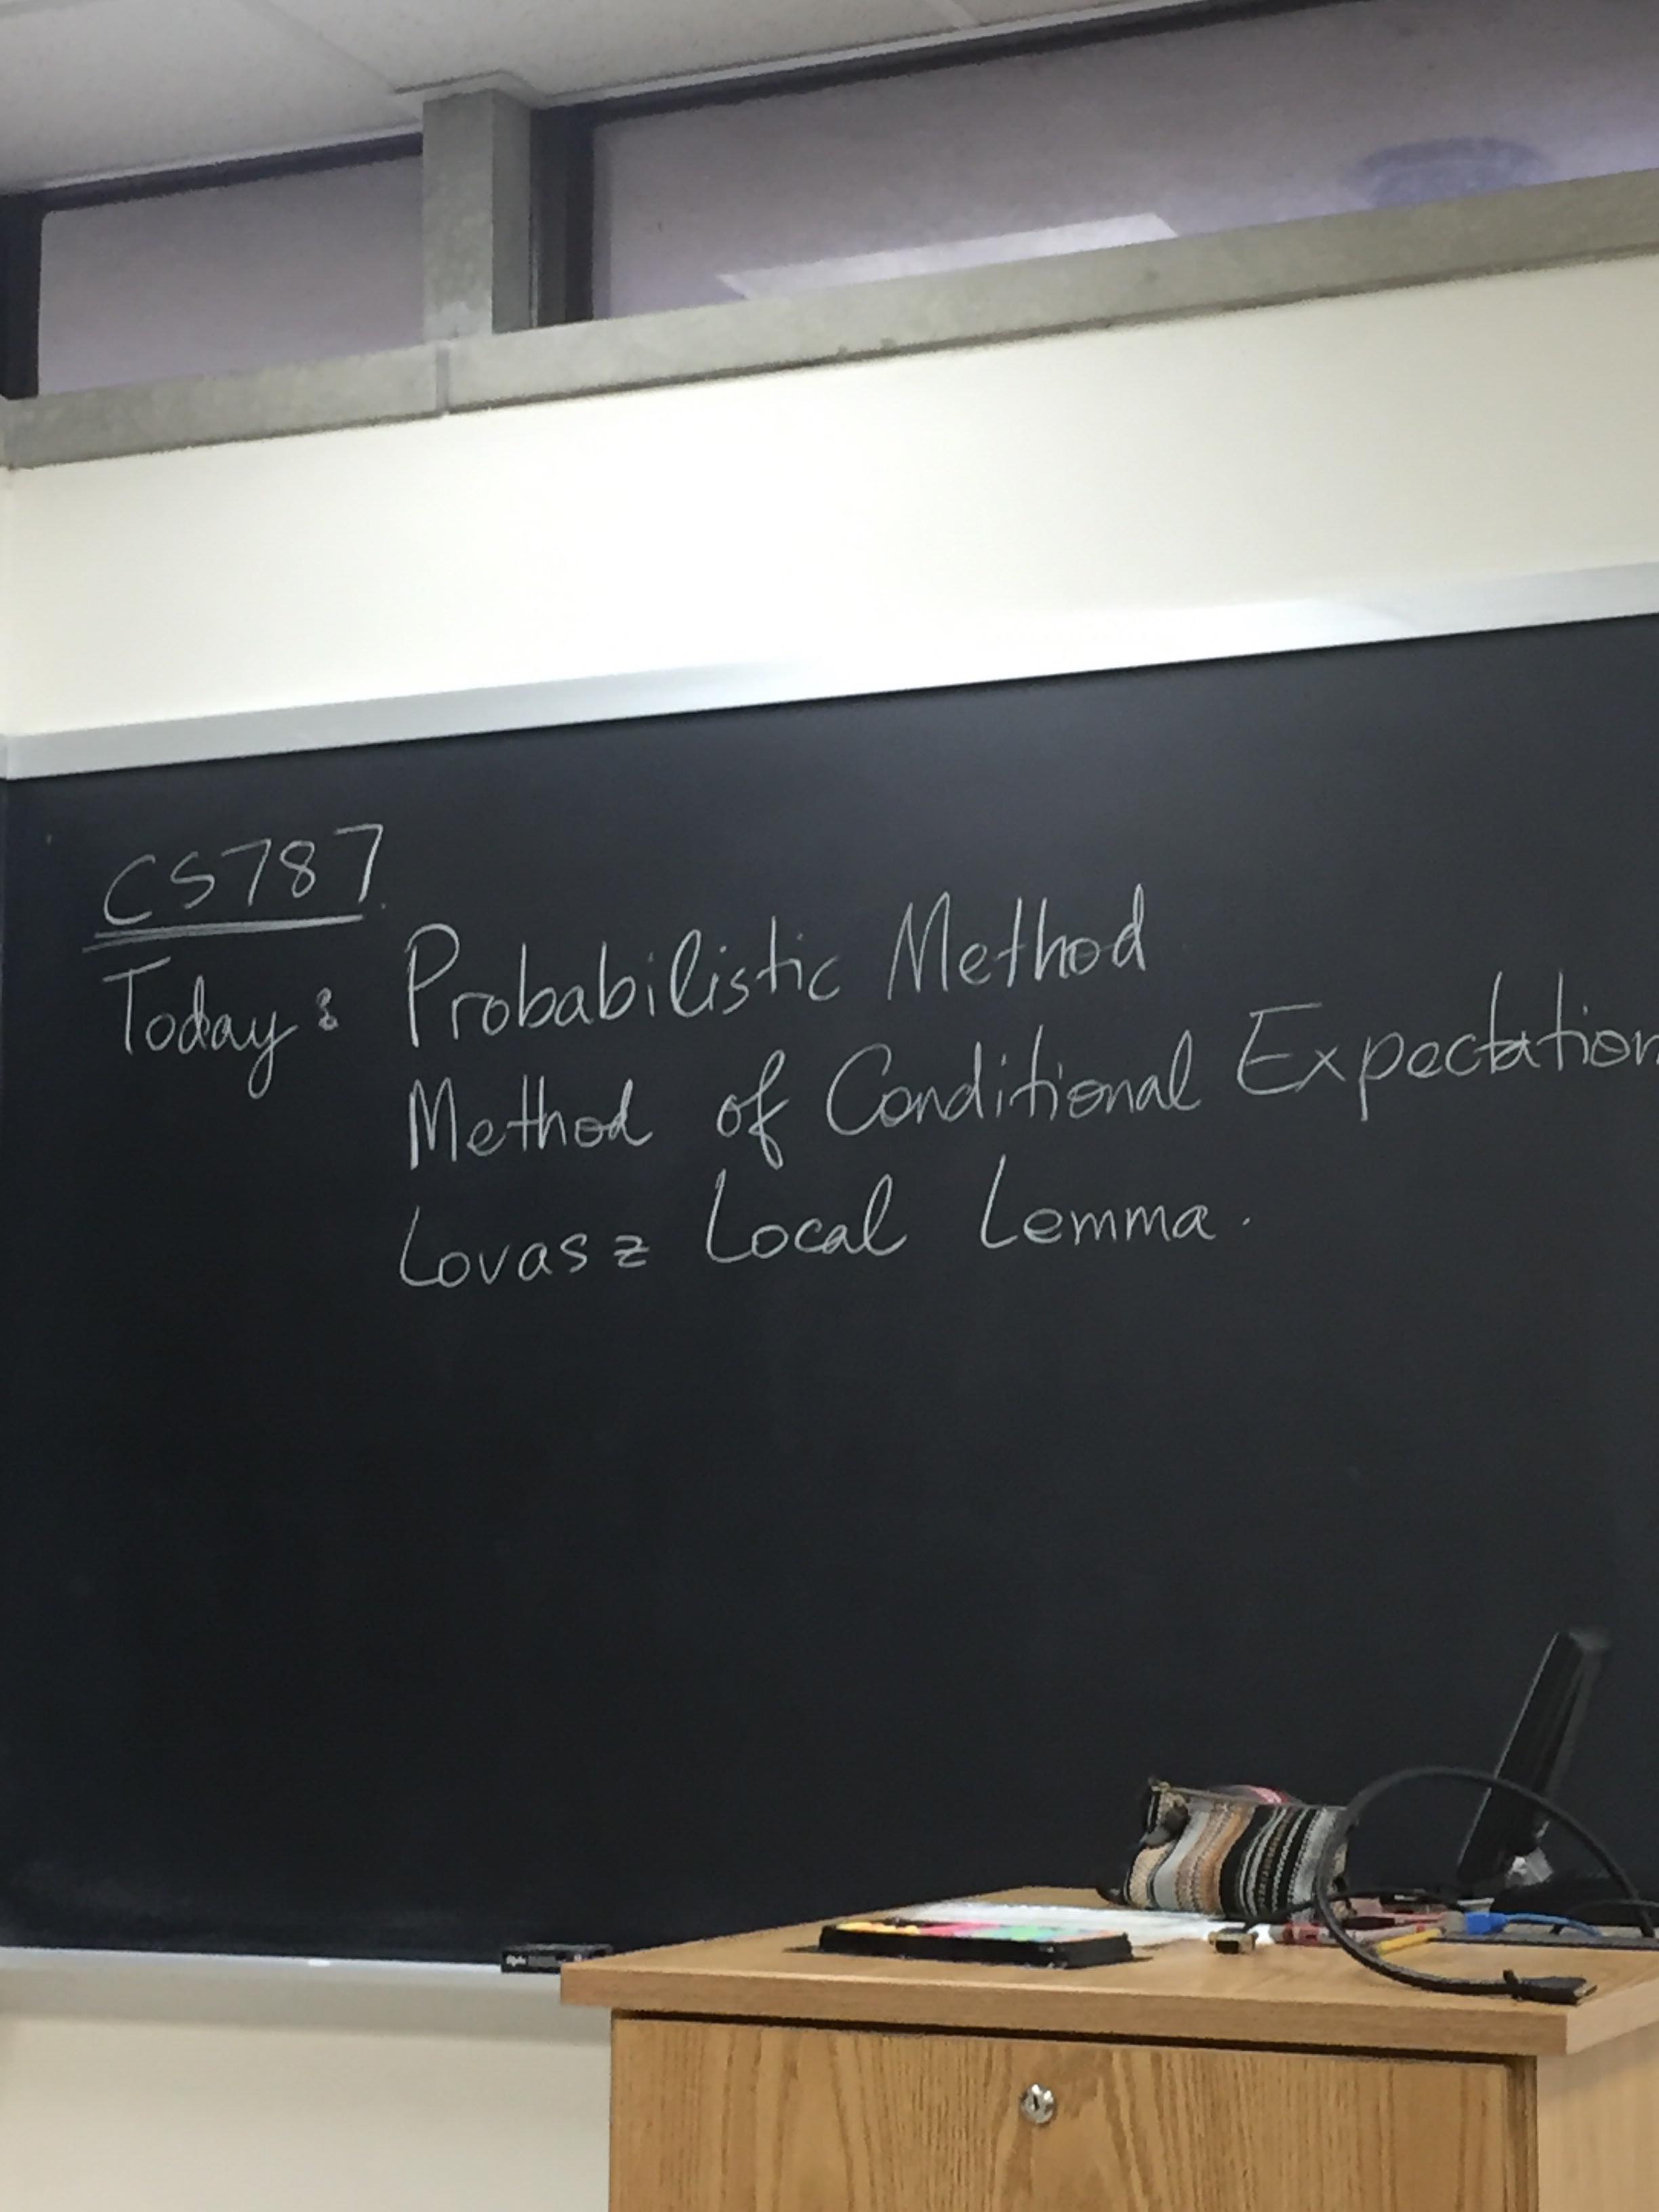 CS787
Today: Probabilistic Method
Method of Conditional Expectation
Lovasz Local Lemma.